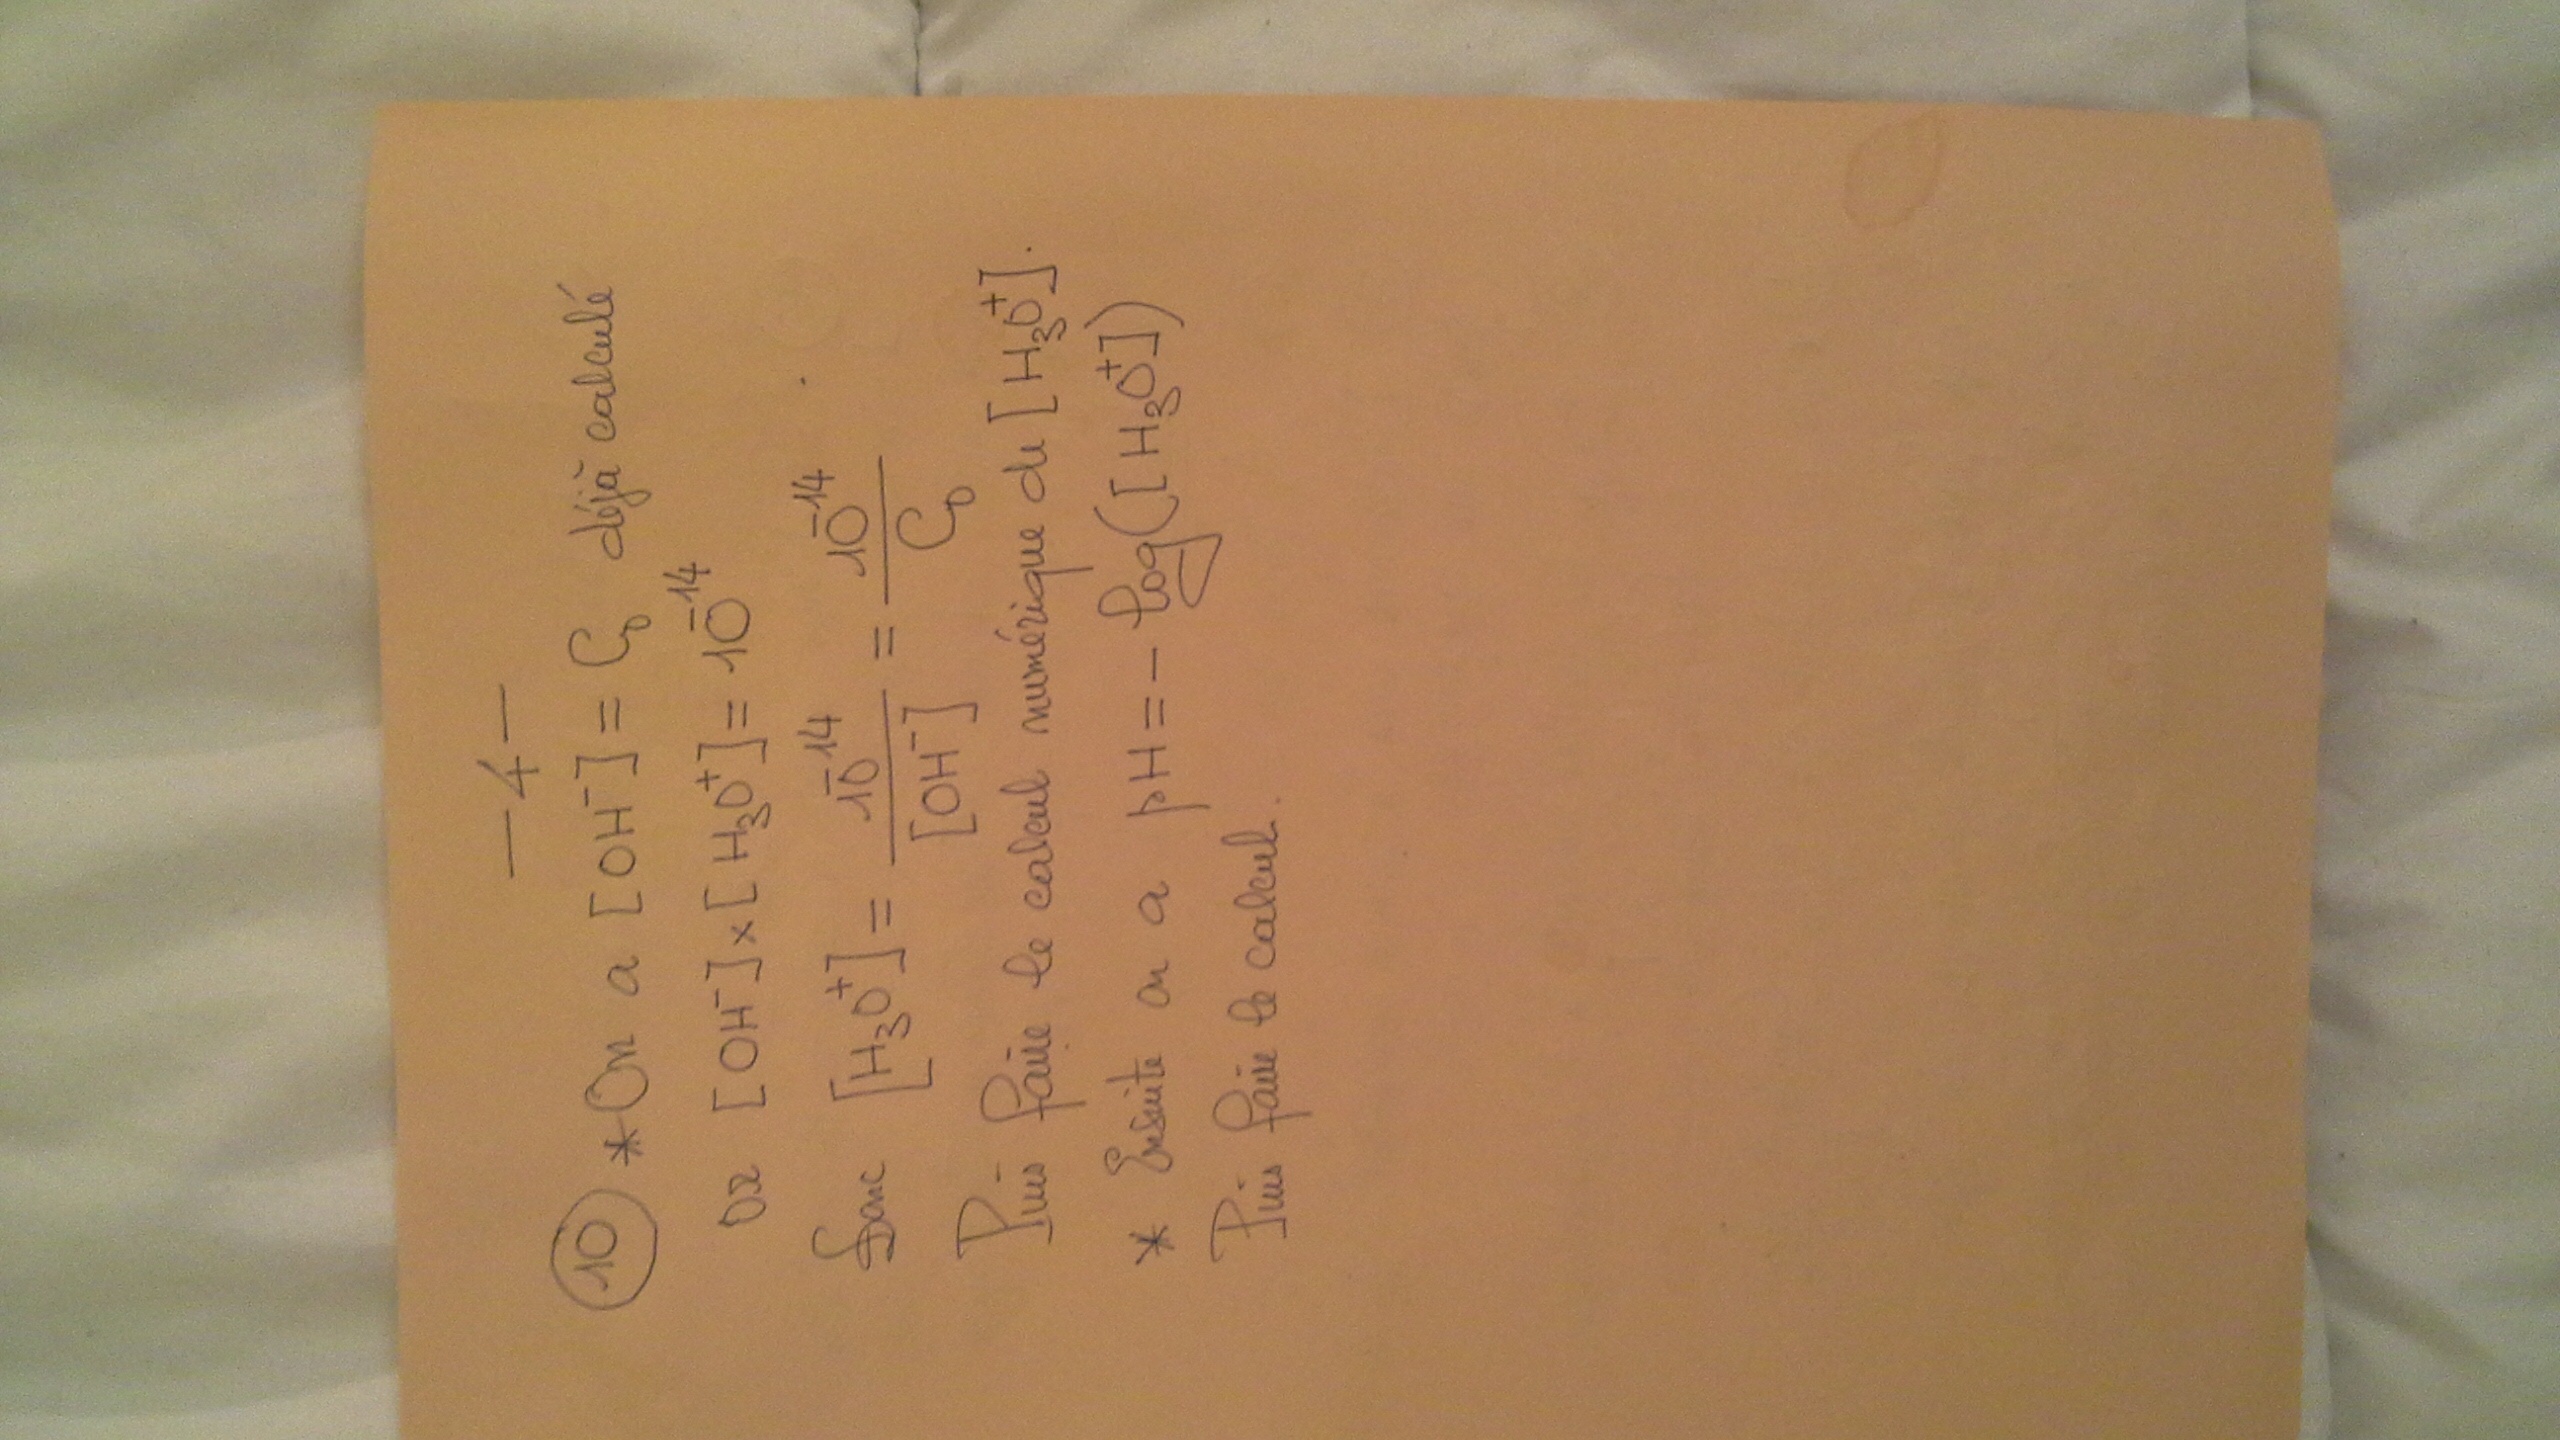 — 4 —
10 * On a [OH⁻] = C₀ déjà calculé
or [OH⁻] × [H₃O⁺] = 10⁻¹⁴
Donc [H₃O⁺] = 10⁻¹⁴ / [OH⁻] = 10⁻¹⁴ / C₀
Puis faire le calcul numérique de [H₃O⁺].
* Ensuite on a pH = - log([H₃O⁺])
Puis faire le calcul.